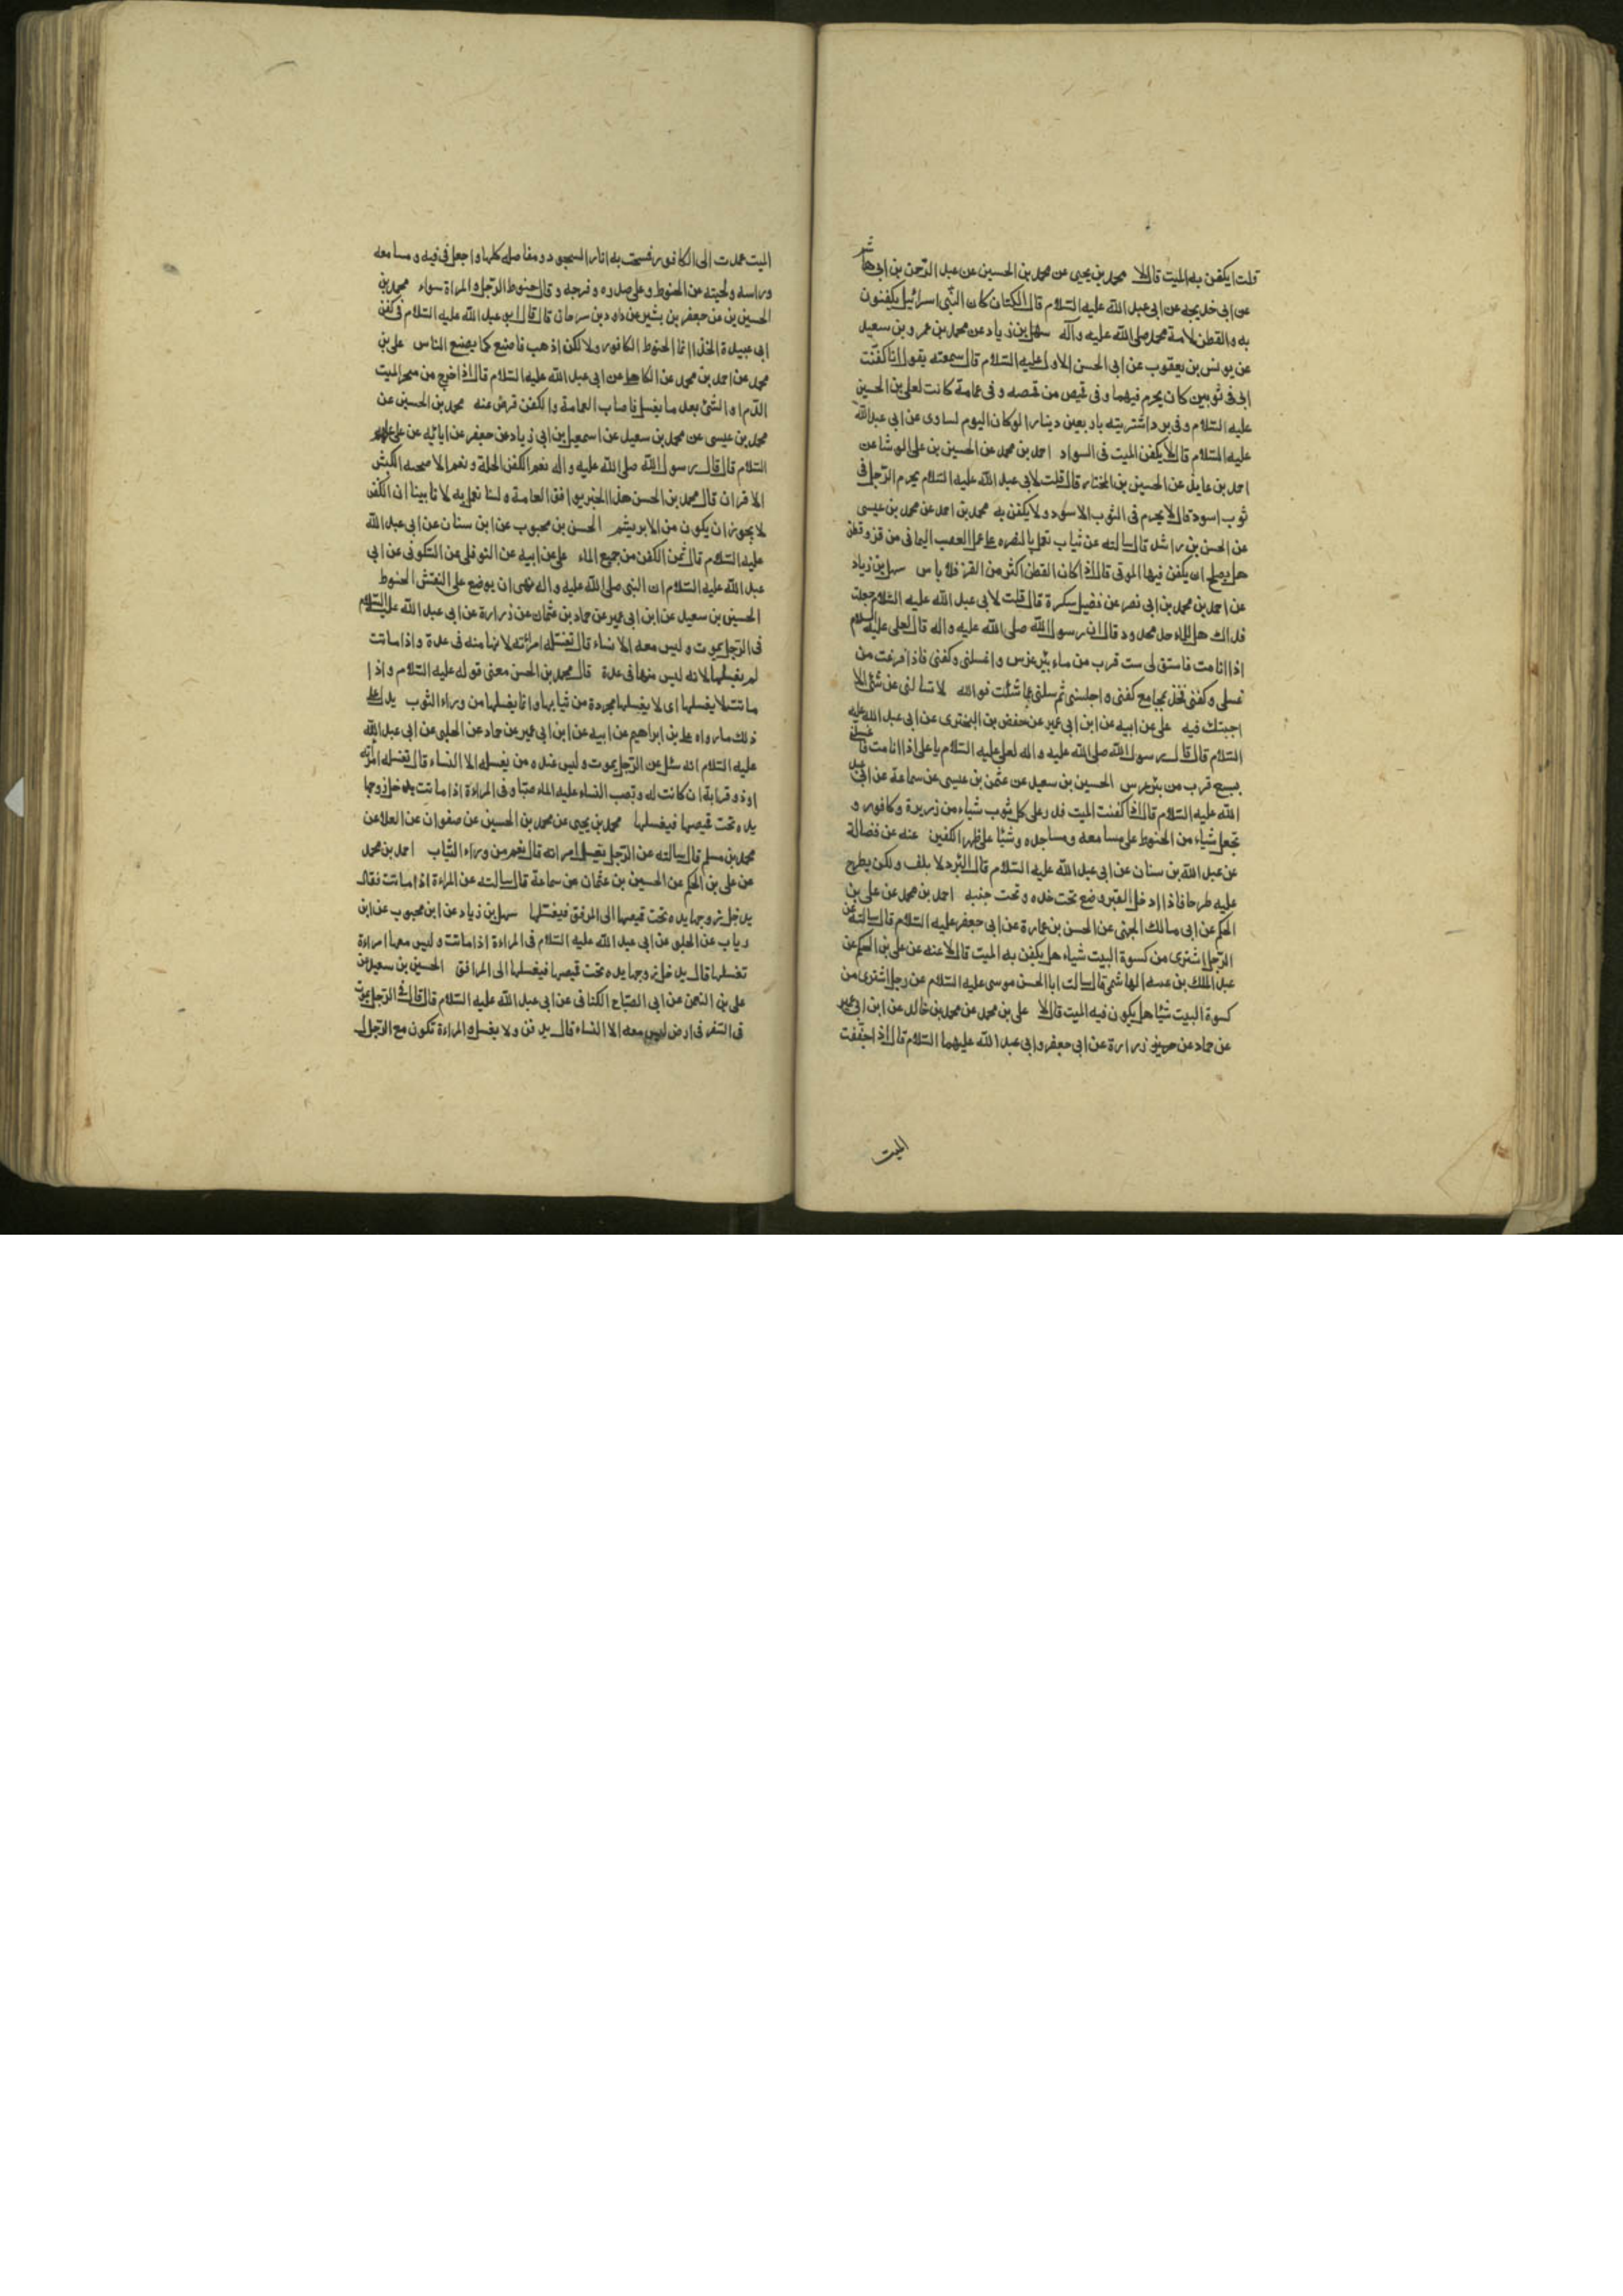 قلت ايكفن به الميت قال لا محمد بن يحيى عن محمد بن الحسين عن عبد الرحمن بن ابى هاشم
عن ابى خديجه عن ابى عبد الله عليه السلام قال الكتان كان لبنى اسرائيل يكفنون
به والقطن لامة محمد صلى الله عليه وآله سهل بن زياد عن محمد بن عمرو بن سعيد
عن يونس بن يعقوب عن ابى الحسن الاول عليه السلام قال سمعته يقول انا كفنت
ابى فى ثوبين كان يحرم فيهما وفى قميص من قمصه وفى عمامة كانت لعلى بن الحسين
عليه السلام وفى برد اشتريته باربعين دينارا لو كان اليوم لساوى عن ابى عبد الله
عليه السلام قال لا يكفن الميت فى السواد احمد بن محمد عن الحسين بن على الوشا عن
احمد بن عايذ عن الحسين بن المختار قال قلت لابى عبد الله عليه السلام يحرم الرجل فى
ثوب اسود قال لا يحرم فى الثوب الاسود ولا يكفن به محمد بن احمد عن محمد بن عيسى
عن الحسن بن راشد قال سالته عن ثياب تعمل بالبصره على عمل العصب اليمانى من قز وقطن
هل يصلح ان يكفن فيها الموتى قال اذا كان القطن اكثر من القز فلا باس سهل بن زياد
عن احمد بن محمد بن ابى نصر عن فضيل سكرة قال قلت لابى عبد الله عليه السلام جعلت
فداك هل للماء حد محدود قال ان رسول الله صلى الله عليه واله قال لعلى عليه السلام
اذا انا مت فاستق لى ست قرب من ماء بئر غرس واغسلنى وكفنى فاذا فرغت من
غسلى وكفنى فخذ بمجامع كفنى واجلسنى ثم سلنى عما شئت فو الله لا تسالنى عن شئ الا
اجبتك فيه على عن ابيه عن ابن ابى عمير عن حفص بن البخترى عن ابى عبد الله عليه
السلام قال قال رسول الله صلى الله عليه واله لعلى عليه السلام يا على اذا انا مت فاغسلنى
بسبع قرب من بئر غرس الحسين بن سعيد عن عثمن بن عيسى عن سماعة عن ابى عبد
الله عليه السلام قال اذا كفنت الميت فذر على كل ثوب شياء من ذريرة وكافور و
تجعل شياء من الحنوط على مسامعه ومساجده وشيئا على ظهر الكفين عنه عن فضالة
عن عبد الله بن سنان عن ابى عبد الله عليه السلام قال البرد لا يلف ولكن يطرح
عليه طرحا فاذا ادخل القبر وضع تحت خده وتحت جنبه احمد بن محمد عن على بن
الحكم عن ابى مالك الجهنى عن الحسن بن عمارة عن ابى جعفر عليه السلام قال سالته عن
الرجل اشترى من كسوة البيت شياء هل يكفن به الميت قال لا عنه عن على بن الحكم عن
عبد الملك بن عتبه الهاشمى قال سالت ابا الحسن موسى عليه السلام عن رجل اشترى من
كسوة البيت شيئا هل يكون فيه الميت قال لا على بن محمد عن محمد بن خالد عن ابن ابى عمير
عن حماد عن حريز زرارة عن ابى جعفر وابى عبد الله عليهما السلام قال اذا جففت
الميت
الميت عمدت الى الكافور فمسحت به اثار السجود ومفاصله كلها واجعل فى فيه ومسامعه
وراسه ولحيته من الحنوط وعلى صدره وفرجه وقال حنوط الرجل والمراة سواء محمد بن
الحسين بن عن جعفر بن بشير عن داود بن سرحان قال قال ابو عبد الله عليه السلام فى كفن
ابى عبيدة الحذا انما الحنوط الكافور ولا لكن اذهب فاصنع كما يصنع الناس على بن
محمد عن احمد بن محمد عن الكاهلى عن ابى عبد الله عليه السلام قال اذا خرج من منخر الميت
الدم او الشئ بعد ما يغسل فاصاب العمامة والكفن قرض عنه محمد بن الحسين عن
محمد بن عيسى عن محمد بن سعيد عن اسمعيل بن ابى زياد عن جعفر عن ابائه عن على عليهم
السلام قال قال رسول الله صلى الله عليه واله نعم الكفن الحلة ونعم الاضحيه الكبش
الاقران قال محمد بن الحسن هذا الخبر يوافق العامة ولسنا نعمل به لانا بينا ان الكفن
لا يجوز ان يكون من الابريشم الحسن بن محبوب عن ابن سنان عن ابى عبد الله
عليه السلام قال ثمن الكفن من جميع الماء على عن ابيه عن النوفلى عن السكونى عن ابى
عبد الله عليه السلام ان النبى صلى الله عليه واله نهى ان يوضع على النعش الحنوط
الحسين بن سعيد عن ابن ابى عمير عن حماد بن عثمان عن زرارة عن ابى عبد الله عليه السلام
فى الرجل يموت وليس معه الا نساء قال تغسله امرئته لانها منه فى عدة واذا ماتت
لم يغسلها لانه ليس منها فى عدة قال محمد بن الحسن معنى قوله عليه السلام واذا
ماتت لا يغسلها اى لا يغسلها مجردة من ثيابها وانما يغسلها من وراء الثوب يدل على
ذلك ما رواه على بن ابراهيم عن ابيه عن ابن ابى عمير عن حماد عن الحلبى عن ابى عبد الله
عليه السلام انه سئل عن الرجل يموت وليس عنده من يغسله الا النساء قال تغسله امرأته
او ذو قرابة ان كانت له وتصب النساء عليه الماء صبا وفى المراءة اذا ماتت يدخل زوجها
يده تحت قميصها فيغسلها محمد بن يحيى عن محمد بن الحسين عن صفوان عن العلا عن
محمد بن مسلم قال سالته عن الرجل يغسل امراته قال نعم من وراء الثياب احمد بن محمد
عن على بن الحكم عن الحسين بن عثمان عن سماعة قال سالته عن المراءة اذا ماتت فقال
يدخل زوجها يده تحت قميصها الى المرفق فيغسلها سهل بن زياد عن ابن محبوب عن ابن
رياب عن الحلبى عن ابى عبد الله عليه السلام فى المراءة اذا ماتت وليس معها امراءة
تغسلها قال يدخل زوجها يده تحت قميصها فيغسلها الى المرافق الحسين بن سعيد عن
على بن النعمن عن ابى الصباح الكنانى عن ابى عبد الله عليه السلام قال قال فى الرجل يموت
فى السفر فى ارض ليس معه الا النساء قال يدفن ولا يغسل والمراءة تكون مع الرجال